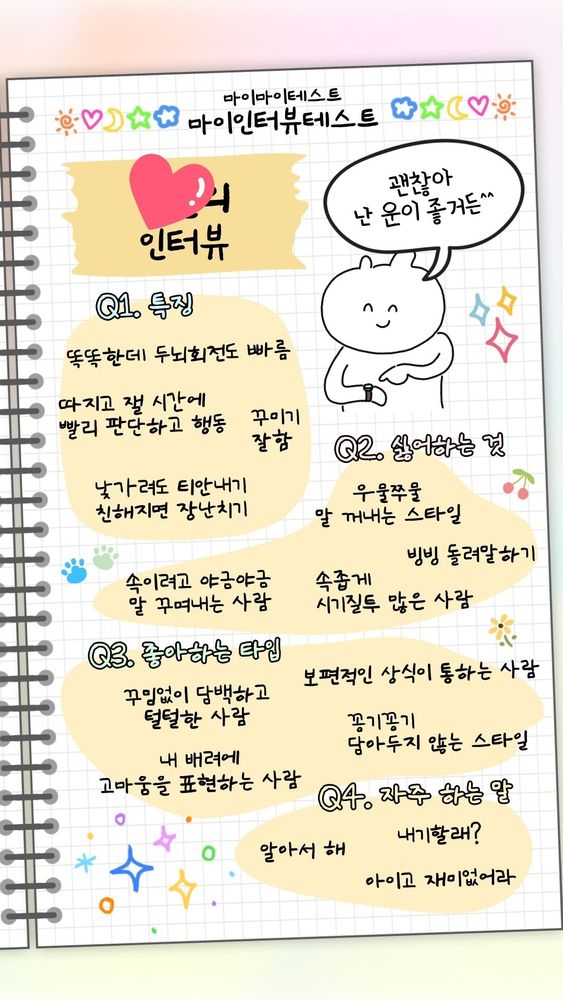 마이마이테스트
마이인터뷰테스트
인터뷰
괜찮아
난 운이 좋거든^^
Q1. 특징
똑똑한데 두뇌회전도 빠름
따지고 잴 시간에
빨리 판단하고 행동
꾸미기
잘함
낯가려도 티안내기
친해지면 장난치기
Q2. 싫어하는 것
우물쭈물
말 꺼내는 스타일
빙빙 돌려말하기
속이려고 야금야금
말 꾸며내는 사람
속좁게
시기질투 많은 사람
Q3. 좋아하는 타입
보편적인 상식이 통하는 사람
꾸밈없이 담백하고
털털한 사람
꽁기꽁기
담아두지 않는 스타일
내 배려에
고마움을 표현하는 사람
Q4. 자주 하는 말
내기할래?
알아서 해
아이고 재미없어라